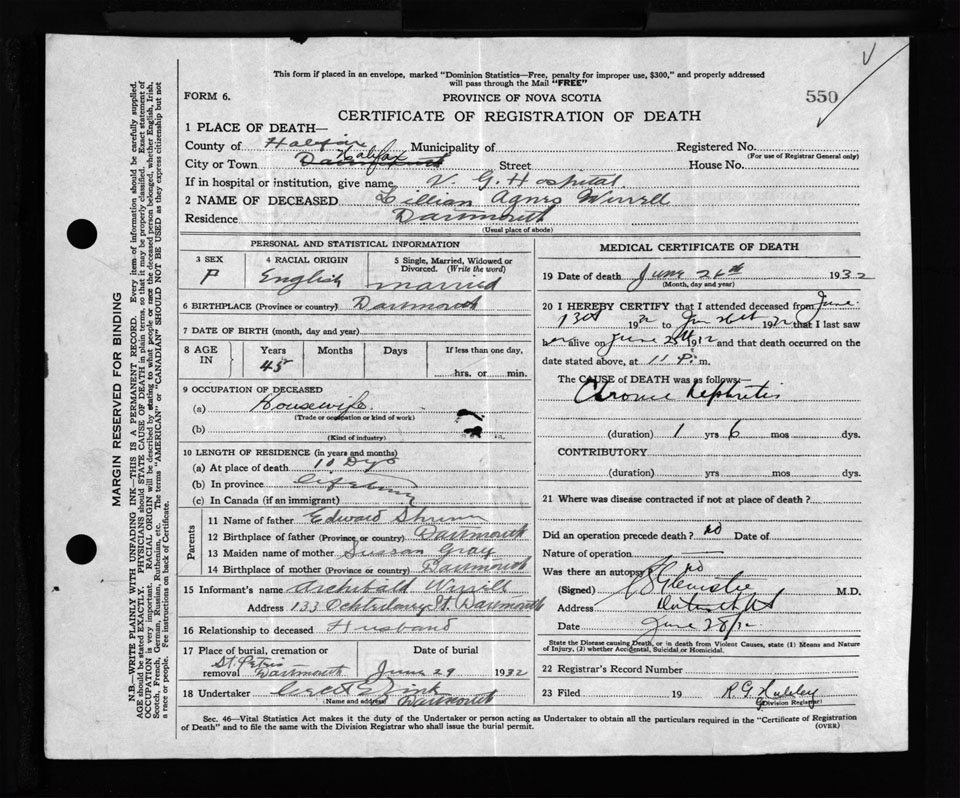 This form if placed in an envelope, marked "Dominion Statistics—Free, penalty for improper use, $300," and properly addressed
will pass through the Mail "FREE"
FORM 6.
PROVINCE OF NOVA SCOTIA
550
CERTIFICATE OF REGISTRATION OF DEATH
1 PLACE OF DEATH—
County of Halifax Municipality of Registered No.
(For use of Registrar General only)
City or Town Halifax Street House No.
If in hospital or institution, give name V. G. Hospital
2 NAME OF DECEASED Lillian Agnes
Residence Dartmouth
(Usual place of abode)
PERSONAL AND STATISTICAL INFORMATION
3 SEX
F
4 RACIAL ORIGIN
English
5 Single, Married, Widowed or
Divorced. (Write the word)
married
6 BIRTHPLACE (Province or country) Dartmouth
7 DATE OF BIRTH (month, day and year)
8 AGE IN
Years Months Days If less than one day,
45
hrs. or min.
9 OCCUPATION OF DECEASED
(a) Housewife
(Trade or occupation or kind of work)
(b)
(Kind of industry)
10 LENGTH OF RESIDENCE (in years and months)
(a) At place of death 10 Dys
(b) In province
(c) In Canada (if an immigrant)
Parents
11 Name of father Edward
12 Birthplace of father (Province or country) Dartmouth
13 Maiden name of mother Sussan Gray
14 Birthplace of mother (Province or country) Dartmouth
15 Informant's name Archibald
Address 133 Dartmouth
16 Relationship to deceased Husband
17 Place of burial, cremation or
removal St. Peters
Dartmouth
Date of burial
June 29 1932
18 Undertaker
(Name and address) Dartmouth
MEDICAL CERTIFICATE OF DEATH
19 Date of death June 26th 1932
(Month, day and year)
20 I HEREBY CERTIFY that I attended deceased from June
19 to 19 that I last saw
h er alive on June 19 and that death occurred on the
date stated above, at 11 P. m.
The CAUSE of DEATH was as follows:—
Chronic Nephritis
(duration) 1 yrs 6 mos dys.
CONTRIBUTORY
(duration) yrs mos dys.
21 Where was disease contracted if not at place of death?
Did an operation precede death? no Date of
Nature of operation
Was there an autopsy? no
(Signed) M.D.
Address
Date June 28/32
State the Disease causing Death, or in death from Violent Causes, state (1) Means and Nature
of Injury, (2) whether Accidental, Suicidal or Homicidal.
22 Registrar's Record Number
23 Filed 19 R. G.
(Division Registrar)
Sec. 46—Vital Statistics Act makes it the duty of the Undertaker or person acting as Undertaker to obtain all the particulars required in the "Certificate of Registration
of Death" and to file the same with the Division Registrar who shall issue the burial permit.
(OVER)
MARGIN RESERVED FOR BINDING
N.B.—WRITE PLAINLY WITH UNFADING INK—THIS IS A PERMANENT RECORD. Every item of information should be carefully supplied.
AGE should be stated EXACTLY. PHYSICIANS should STATE CAUSE OF DEATH in plain terms, so that it may be properly classified. Exact statement of
OCCUPATION is very important. RACIAL ORIGIN will be described by stating to what people or race the deceased person belonged, whether English, Irish,
Scotch, French, German, Russian, Ruthenian, etc. The terms "AMERICAN" or "CANADIAN" SHOULD NOT BE USED as they express citizenship but not
a race or people. Fee instructions on back of Certificate.